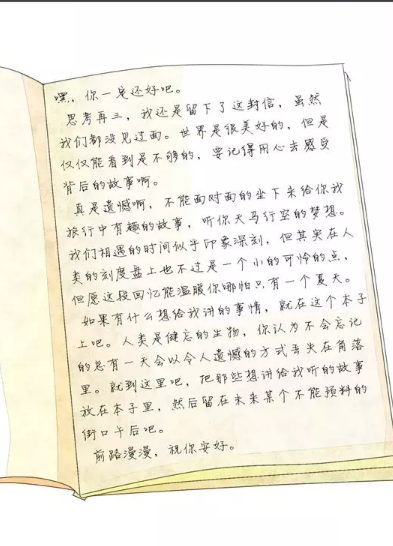 嘿，你一定还好吧。
思考再三，我还是留下了这封信，虽然
我们都没见过面。世界是很美好的，但是
仅仅能看到是不够的，要记得用心去感受
背后的故事啊。
真是遗憾啊，不能面对面的坐下来给你我
旅行中有趣的故事，听你天马行空的梦想。
我们相遇的时间似乎印象深刻，但其实在人
类的刻度盘上也不过是一个小的可怜的点，
但愿这段回忆能温暖你哪怕只有一个夏天。
如果有什么想给我讲的事情，就在这个本子
上吧。人类是健忘的生物，你认为不会忘记
的总有一天会以令人遗憾的方式丢失在角落
里。就到这里吧，把那些想讲给我听的故事
放在本子里，然后留在未来某个不能预料的
街口午后吧。
前路漫漫，祝你安好。